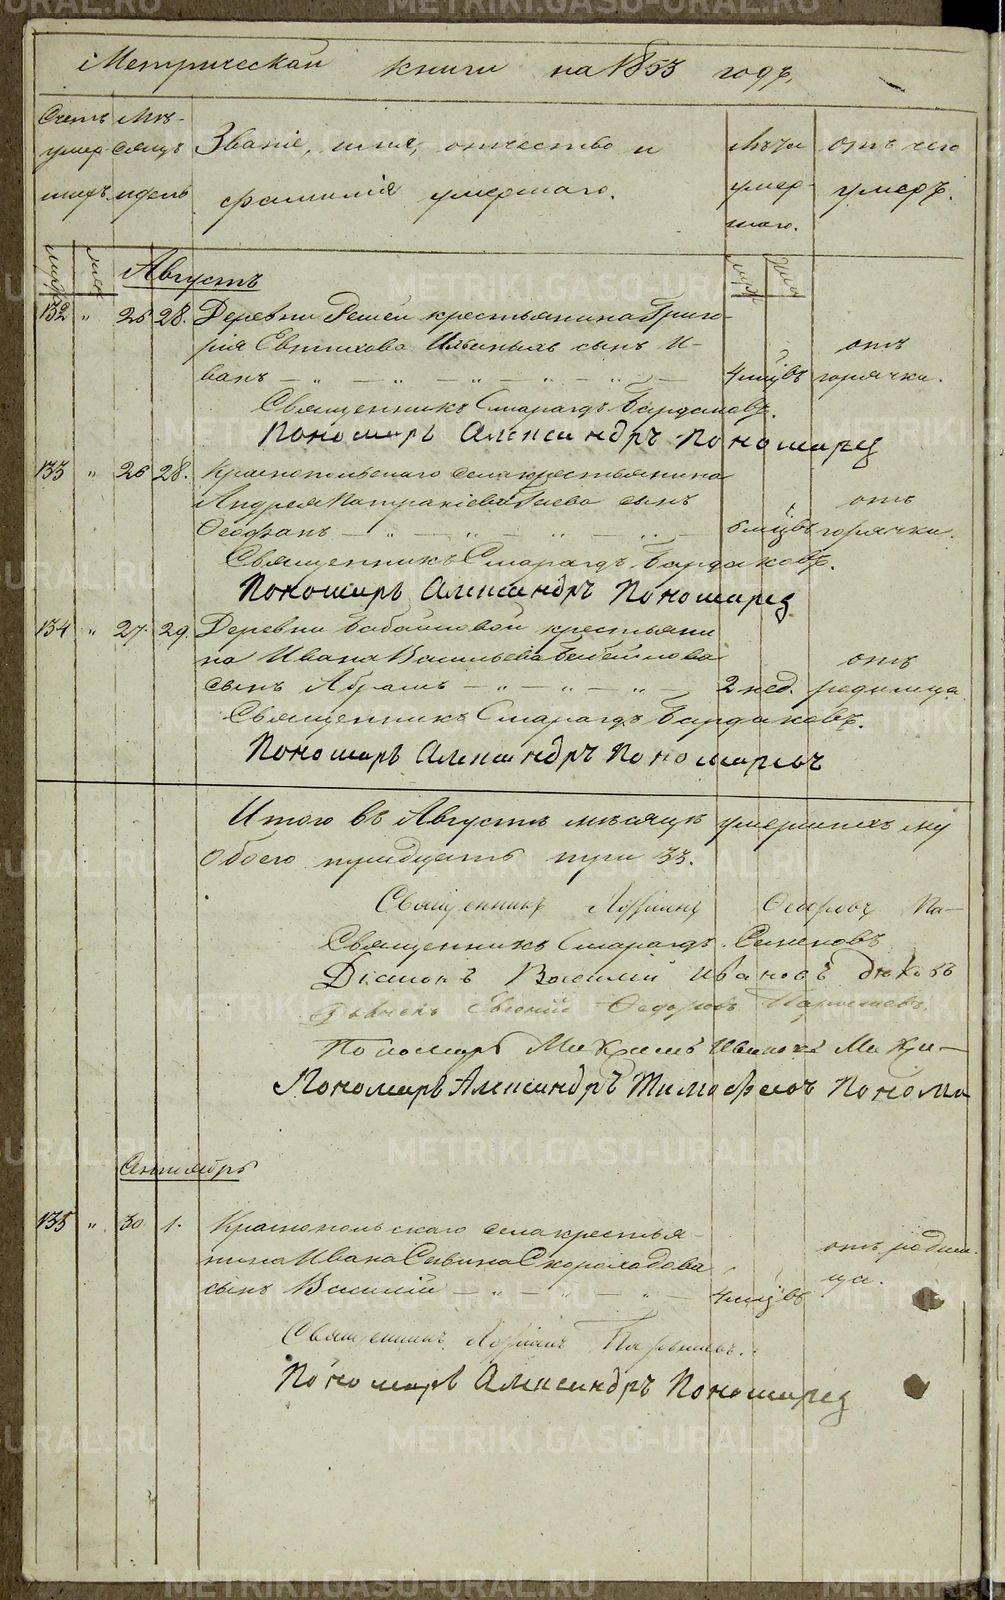 Метрической книги на 1853 годъ,
Счетъ умер- шихъ.
Мѣ- сяцъ и день
Званіе, имя, отчество и
фамилія умершаго.
Лѣта умер- шаго.
отъ чего умеръ.
Августъ
132 " 25 28. Деревни крестьянина Григо-
рія Евтихова сынъ И-
ванъ — " — " — " — " — 4 мѣсяцъ отъ горячки.
Священникъ Смарагдъ Бардаковъ.
Пономарь Александръ Пономарев
133 " 26 28. Краснопольскаго села крестьянина
Андрея Патракіева Гаева сынъ
Ѳеофанъ — " — " — " — 6 мѣсцвъ отъ горячки.
Священникъ Смарагдъ Бардаковъ.
Пономарь Александръ Пономарев
134 " 27. 29. Деревни Бабайловой крестьяни
на Ивана Васильева Бабайлова
сынъ Абрамъ — " — " — " — 2 нед. отъ родимца.
Священникъ Смарагдъ Бардаковъ.
Пономарь Александръ Пономаревъ
Итого въ Августѣ мѣсяцѣ умершихъ му
Обоего тридцать три 33.
Священникъ Ѳедоровъ Па-
Священникъ Смарагдъ Семеновъ
Діаконъ Василій Ивановъ Дюковъ
Дьячекъ Евгеній Ѳедоровъ
Пономарь Иванов
Пономарь Александръ Тимофеевъ Понома
Сентябрь
135 " 30. 1. Краснопольскаго села крестья-
нина Ивана Савина Скороходова
сынъ Василій — " — " — " — 4 мѣсцвъ отъ родим-
ца.
Священникъ
Пономарь Александръ Пономарев
METRIKI.GASO-URAL.RU